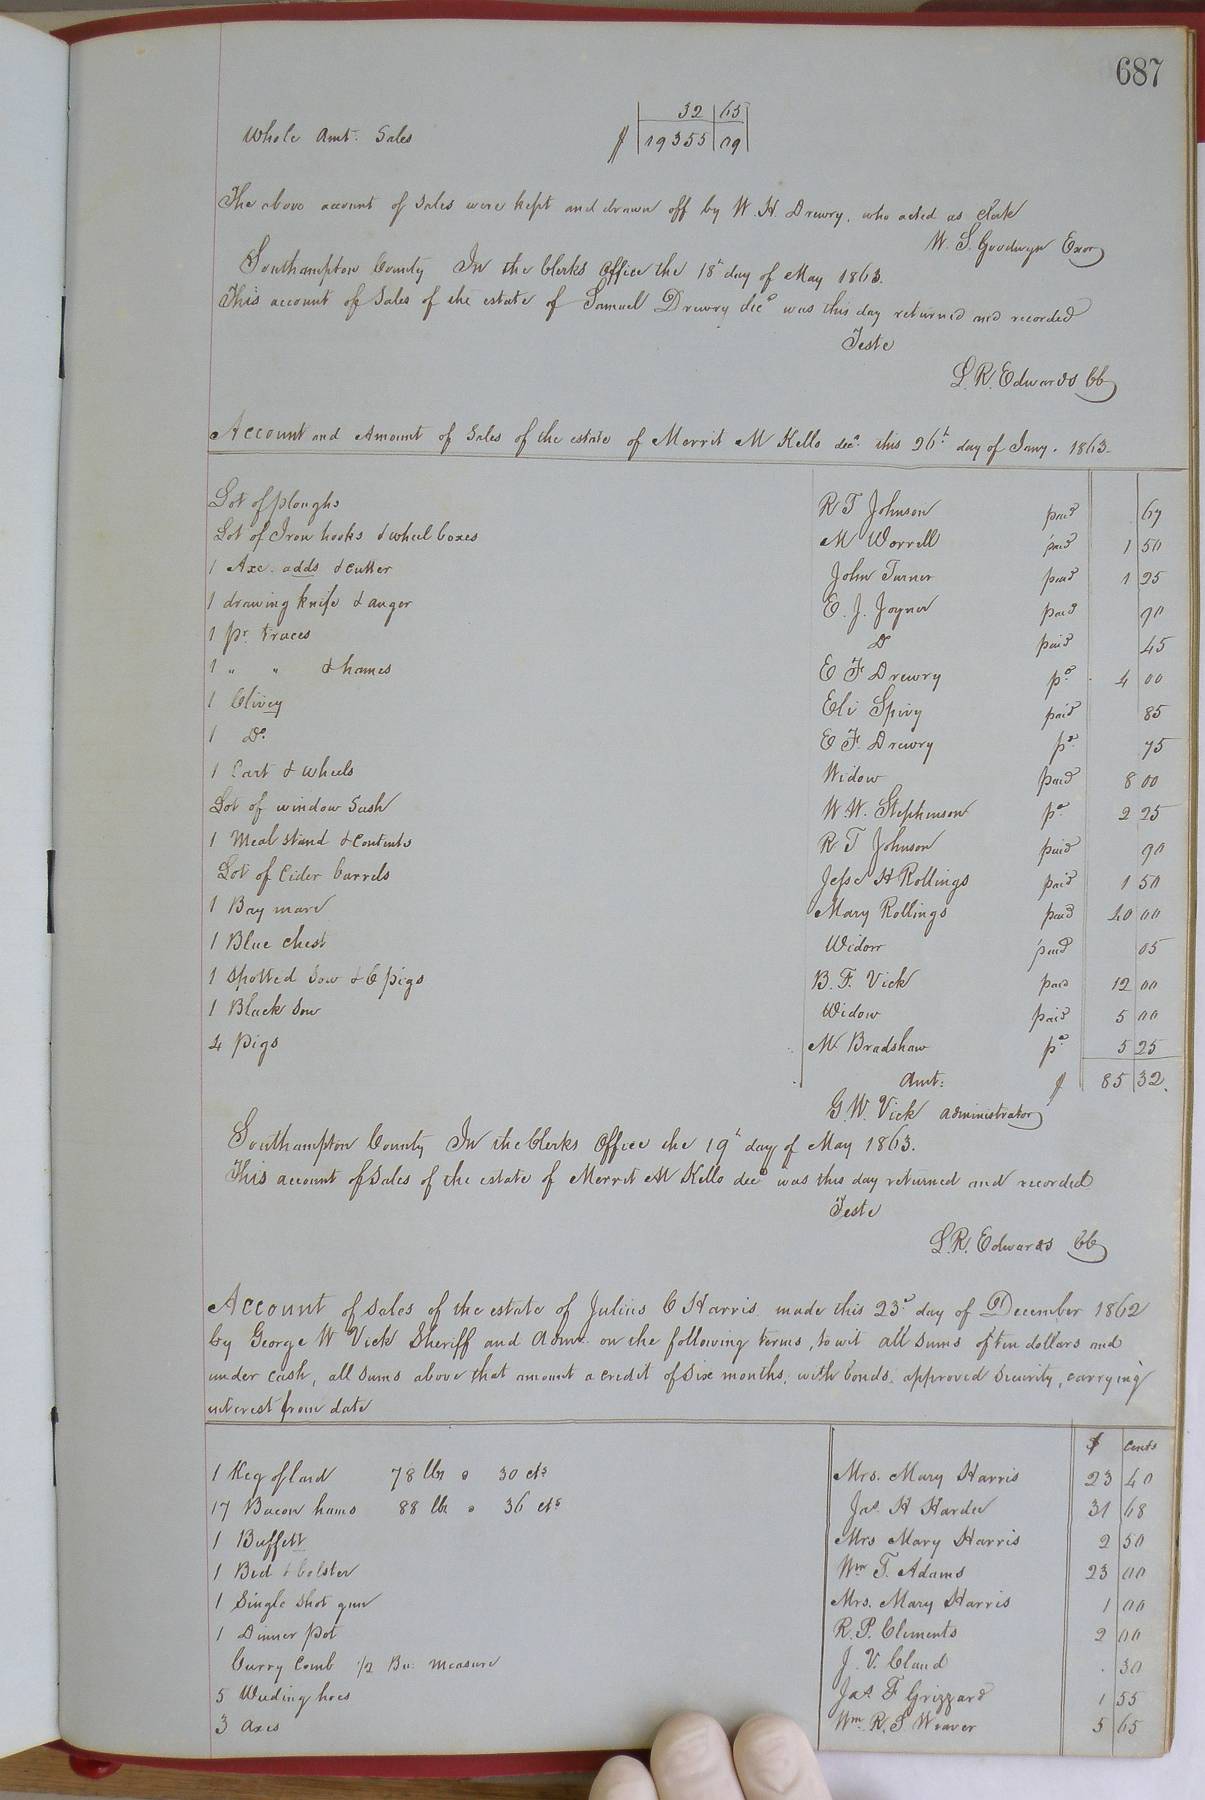 687
32 65
Whole Amt. Sales $ 19355 09
The above account of Sales were kept and drawn off by W. H. Drewry, who acted as Clerk
W. S. Goodwyn Exor
Southampton County In the Clerks Office the 18th day of May 1863.
This account of Sales of the estate of Samuel Drewry decd was this day returned and recorded
Teste
L. R. Edwards CC
Account and Amount of Sales of the estate of Merrit M Kello decd this 26th day of Jany. 1863.
Lot of ploughs R T Johnson paid 67
Lot of Iron hooks & wheel boxes M Worrell paid 1 50
1 Axe adds & cutter John Turner paid 1 25
1 drawing knife & auger E. J. Joyner paid 90
1 pr. traces Do paid 45
1 " " & hames E F Drewry pd 4 00
1 Clivey Eli Spivy paid 85
1 Do. E F. Drewry pd 75
1 Cart & wheels Widow paid 8 00
Lot of window Sash W. W. Stephenson pd 2 25
1 Meal stand & contents R T Johnson paid 90
Lot of Cider barrels Jesse H Rollings paid 1 50
1 Bay mare Mary Rollings paid 40 00
1 Blue chest Widow paid 05
1 Spotted Sow & 6 pigs B. F. Vick paid 12 00
1 Black Sow Widow paid 5 00
4 pigs M Bradshaw pd 5 25
Amt: $ 85 32.
G. W. Vick administrator
Southampton County In the Clerks Office the 19th day of May 1863.
This account of Sales of the estate of Merrit M Kello decd was this day returned and recorded
Teste
L. R. Edwards CC
Account of sales of the estate of Julius C Harris made this 23d day of December 1862
by George W Vick Sheriff and Admr. on the following terms, to wit all sums of ten dollars and
under cash, all sums above that amount a credit of six months, with bonds approved security, carrying
interest from date
$ cents
1 Keg of lard 78 lbs @ 30 cts Mrs. Mary Harris 23 40
17 Bacon hams 88 lbs @ 36 cts Jas. H Harden 31 68
1 Buffett Mrs Mary Harris 2 50
1 Bed & bolster Wm T. Adams 23 00
1 Single shot gun Mrs. Mary Harris 1 00
1 Dinner pot R. P. Clements 2 00
Curry Comb 1/2 Bu. measure J. V. Claud 30
5 Weeding hoes Jas. F Grizzard 1 55
3 axes Wm. R. S Weaver 5 65